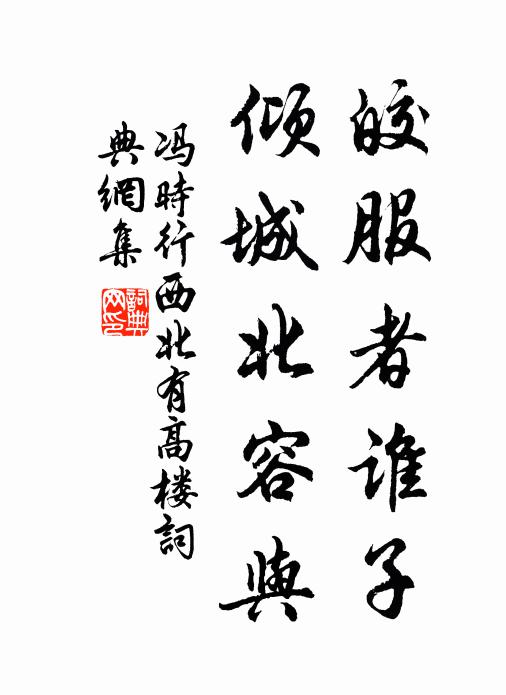 皎服者谁子
倾城北容與
冯時行西北有高楼詞
典網集
詞典
网印